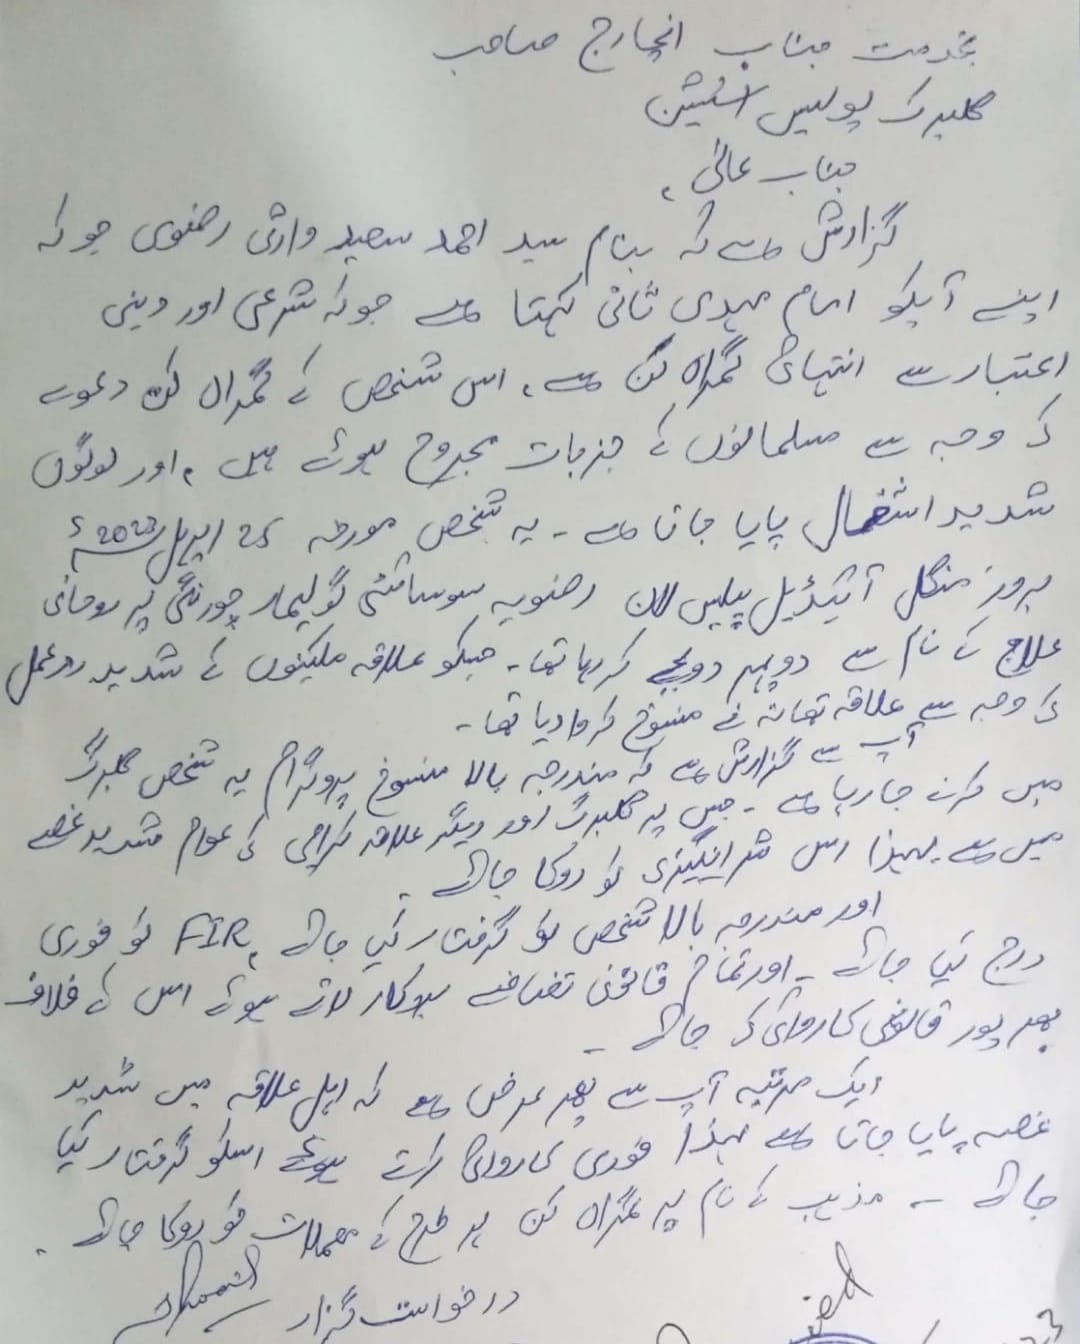 بخدمت جناب انچارج صاحب
گلبرگ پولیس اسٹیشن
جناب عالی ،
گزارش ہے کہ بنام سید احمد سعید وارثی رضوی جو کہ
اپنے آپکو امام مہدی ثانی کہتا ہے جو کہ شرعی اور دینی
اعتبار سے انتہائی گمراہ کن ہے ، اس شخص کے گمراہ کن دعوے
کی وجہ سے مسلمانوں کے جزبات مجروح ہوئے ہیں ، اور لوگوں
شدید اشتعال پایا جاتا ہے ۔ یہ شخص مورخہ 25 اپریل 2023ء
بروز منگل آئیڈیل پیلس لان رضویہ سوسائٹی گولیمار چورنگی پر روحانی
علاج کے نام سے دوپہر دو بجے کر رہا تھا ۔ جسکو علاقہ مکینوں کے شدید ردعمل
کی وجہ سے علاقہ تھانہ نے منسوخ کروا دیا تھا ۔
آپ سے گزارش ہے کہ مندرجہ بالا منسوخ پروگرام یہ شخص گلبرگ
میں کرنے جا رہا ہے ۔ جس پر گلبرگ اور دیگر علاقہ کراچی کی عوام شدید غصے
میں ہے لہذا اس شرانگیزی کو روکا جائے ۔
اور مندرجہ بالا شخص کو گرفتار کیا جائے ، FIR کو فوری
درج کیا جائے ۔ اور تمام قانونی تقاضے بروکار لاتے ہوئے اس کے خلاف
بھر پور قانونی کاروائی کی جائے ۔
ایک مرتبہ آپ سے پھر عرض ہے کہ اہل علاقہ میں شدید
غصہ پایا جاتا ہے لہذا فوری کاروائی کرتے ہوئے اسکو گرفتار کیا
جائے ۔ مذہب کے نام پر گمراہ کن ہر طرح کے معملات کو روکا جائے ۔
درخواست گزار